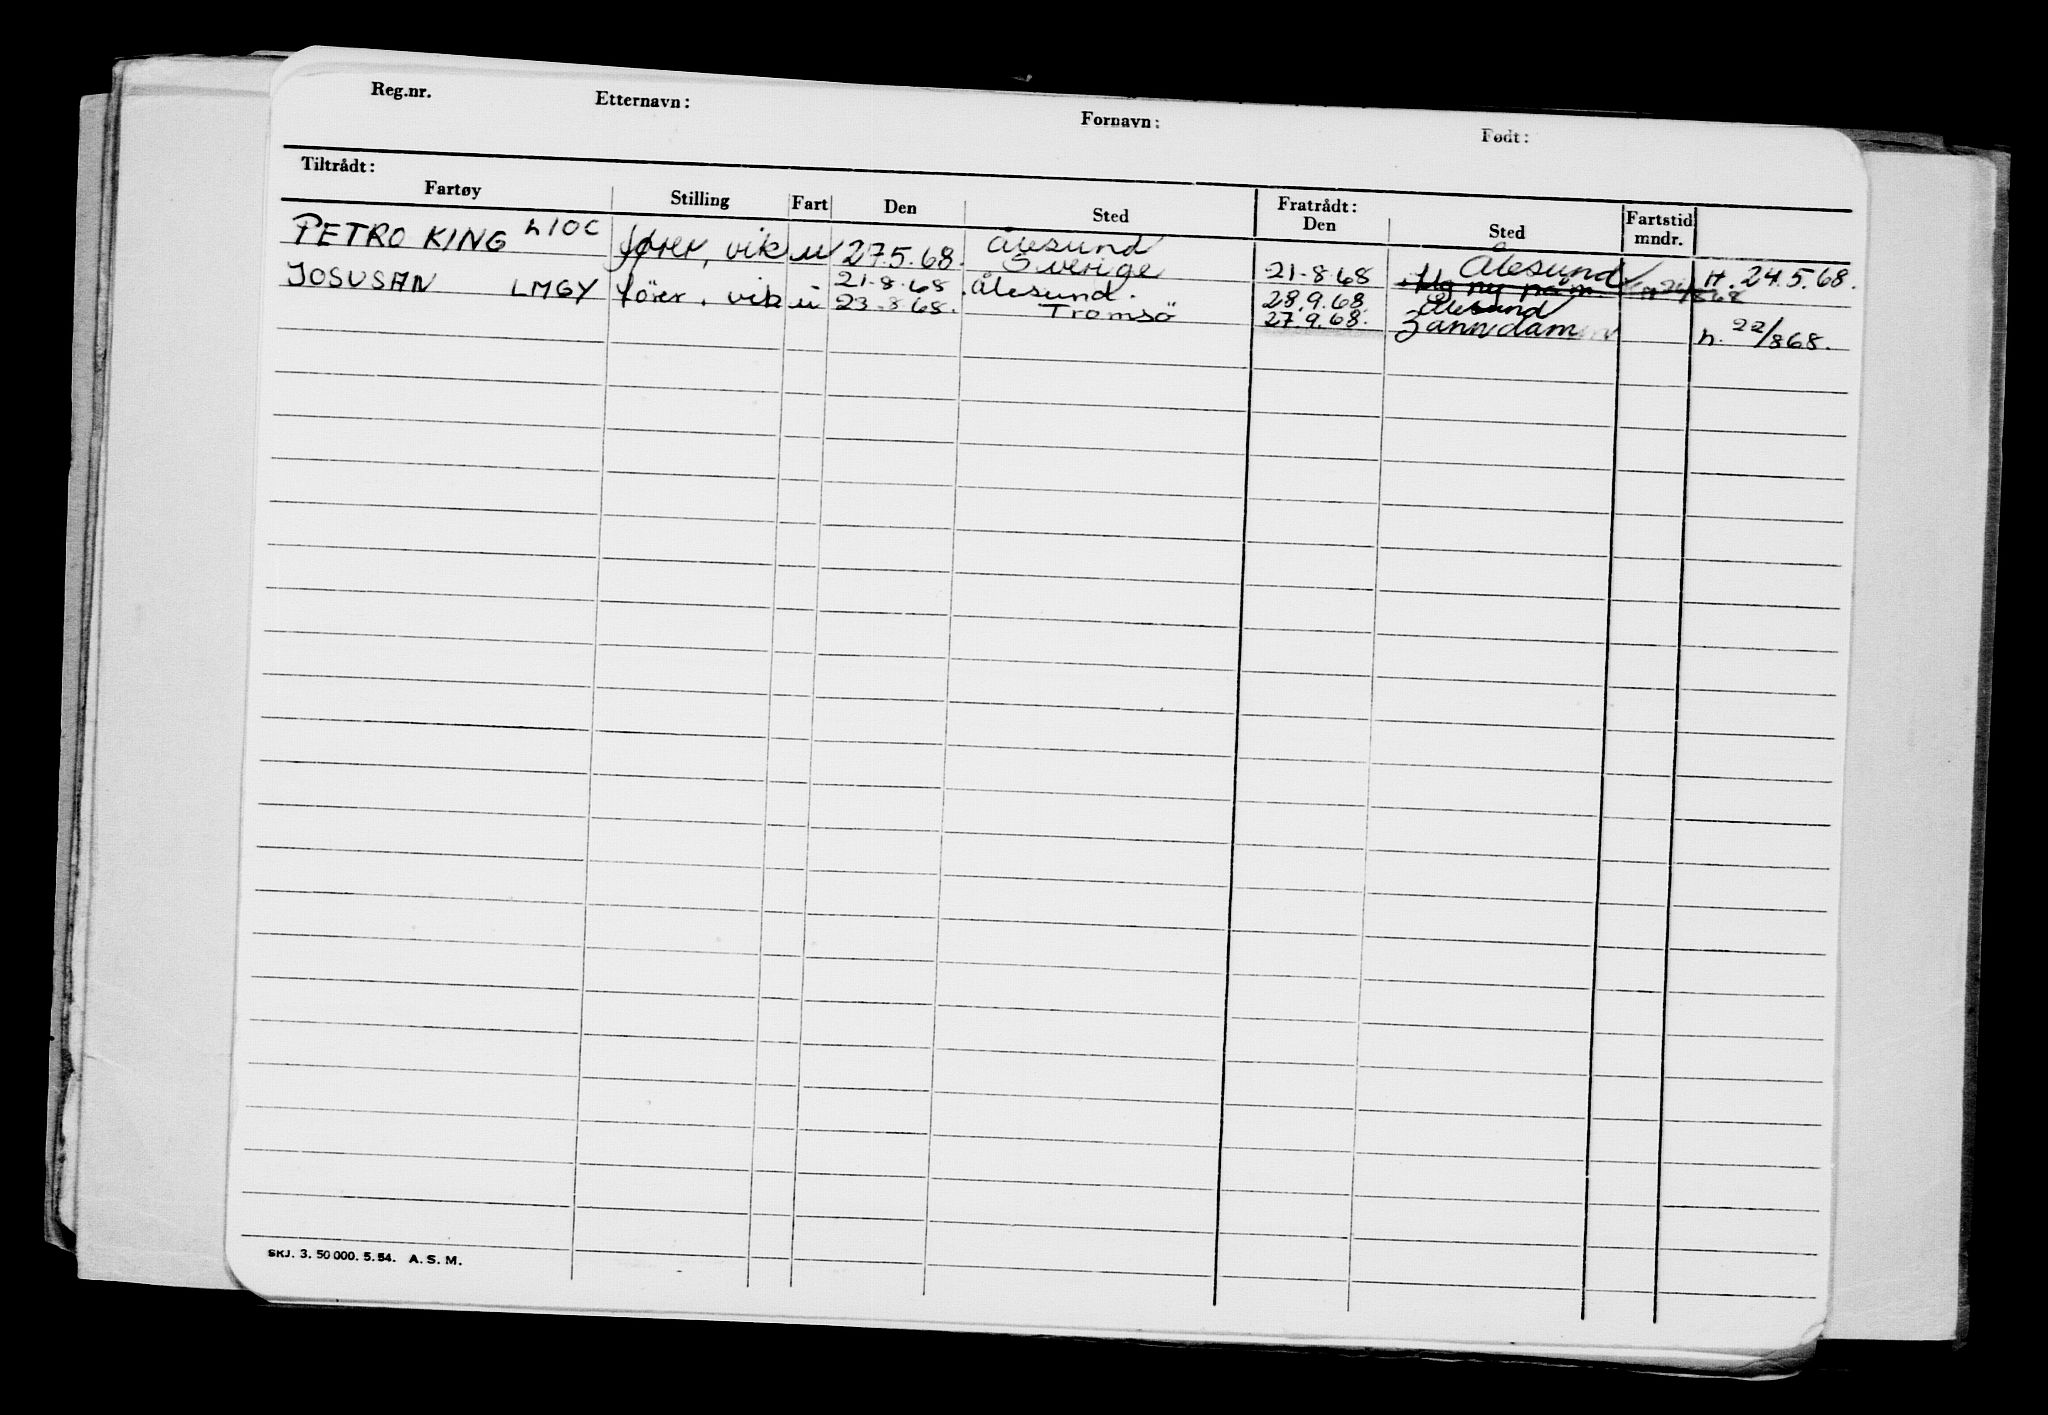 Reg.nr. Etternavn: Fornavn: Født:
Tiltrådt: Fratrådt:
Fartøy Stilling Fart Den Sted Den Sted Fartstid mndr.
PETRO KING LIOC fører, vik u 27.5.68. Ålesund 21-8-68 Ålesund H. 24.5.68.
Sverige
JOSUSAN LMGY förer. vik u 21.8.68. Ålesund. 28.9.68. Ålesund
23-8-68. Tromsö 27.9.68. Zanndam h. 22/868.
SKJ. 3. 50 000. 5. 54. A. S. M.